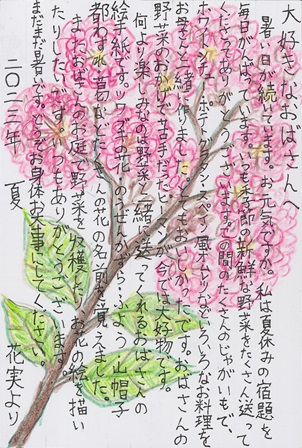 大好きなおばさんへ
暑い日が続いてます。お元気ですか。私は夏休みの宿題を
毎日がんばっています。いつも季節の新鮮な野菜をたくさん送って
くださってありがとうございます。この間のたくさんのじゃがいもで、
ポテトグラタン、スペイン風オムレツなどいろいろなお料理を
お母さんと一緒に作りました。とてもおいしかったです。おばさんの
野菜のおかげで苦手だったピーマンが今では大好物です。
何より楽しみなのは野菜と一緒に送ってくれるおばさんの
絵手紙です。ツワブキの花、のうぜんかずら、ふよう、山帽子
都わすれ、葛などたくさんの花の名前を覚えました。
またおばさんのお庭で野菜を収穫したり、お花の絵を描い
たりしたいです。いつもありがとうございます。
まだまだ暑いです。どうぞお身体大事にしてください。
二〇二三年 夏 花実より